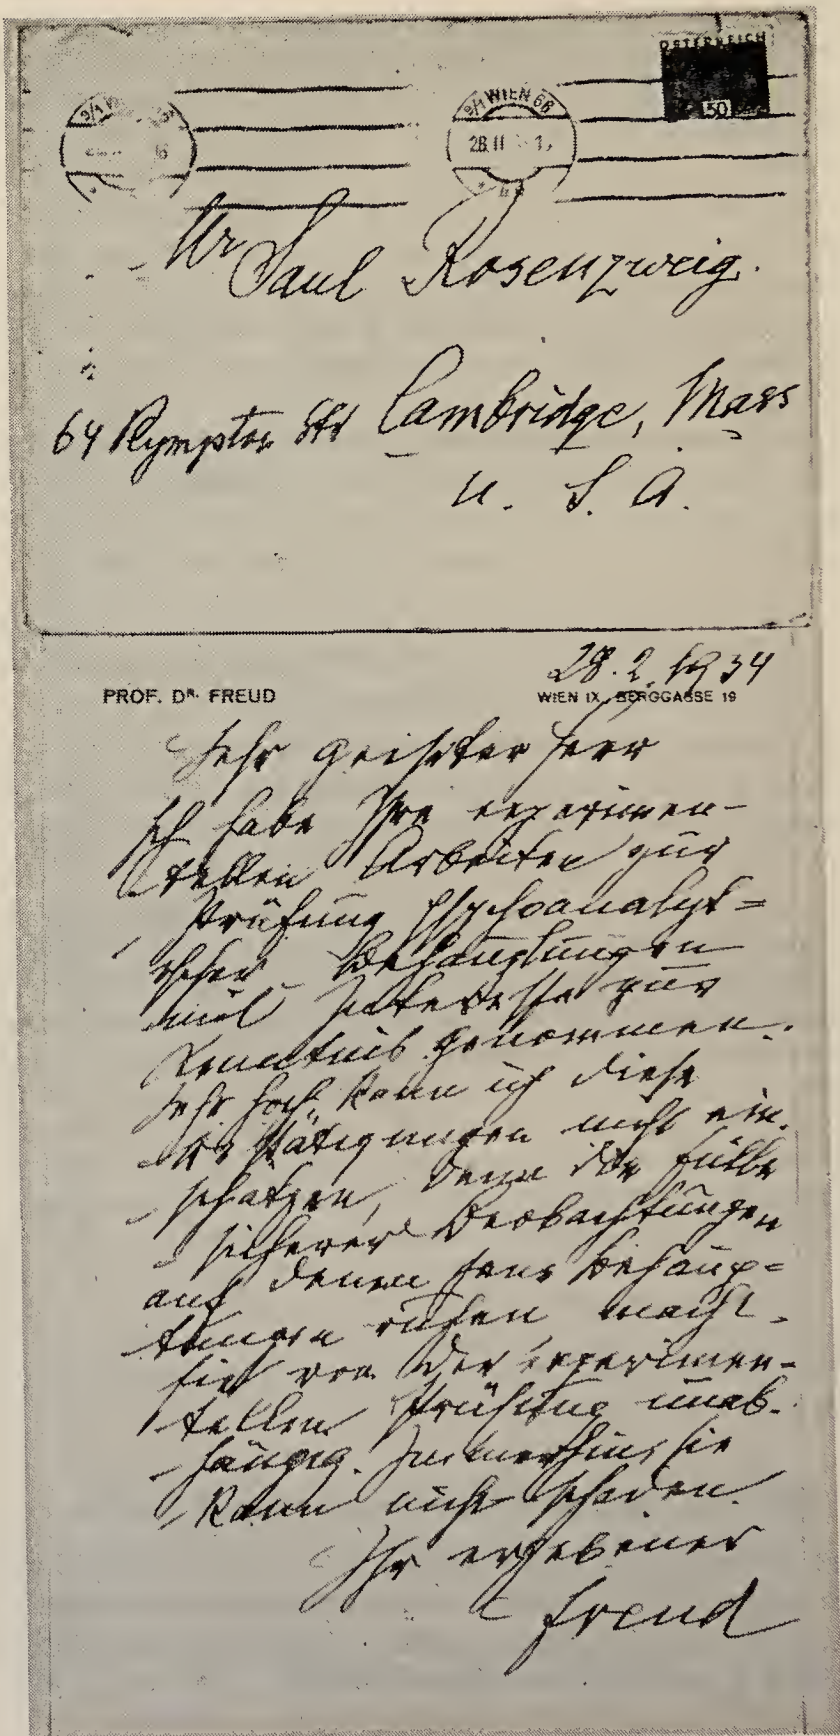 ÖSTERREICH
9/1 WIEN 66
28.II
50
Mr Saul Rosenzweig.
64 Plympton Str Cambridge, Mass
U. S. A.
28.2.1934
PROF. DR. FREUD
WIEN IX., BERGGASSE 19
Sehr geehrter Herr
Ich habe Ihre experimen-
tellen Arbeiten zur
Prüfung psychoanalyti=
scher Behauptungen
mit Interesse zur
Kenntnis genommen.
Sehr hoch kann ich diese
Bestätigungen nicht ein-
schätzen, denn die Fülle
sicherer Beobachtungen
auf denen jene Behaup=
tungen ruhen macht
sie von der experimen-
tellen Prüfung unab-
hängig. Immerhin, sie
kann nicht schaden.
Ihr ergebener
Freud